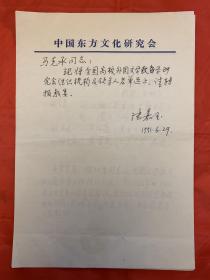 中国东方文化研究会
马克承同志：
现将全国高校外国文学教学研
究会组织机构及负责人名单送上，请转
报教委。
陈嘉厚
1991.6.29.